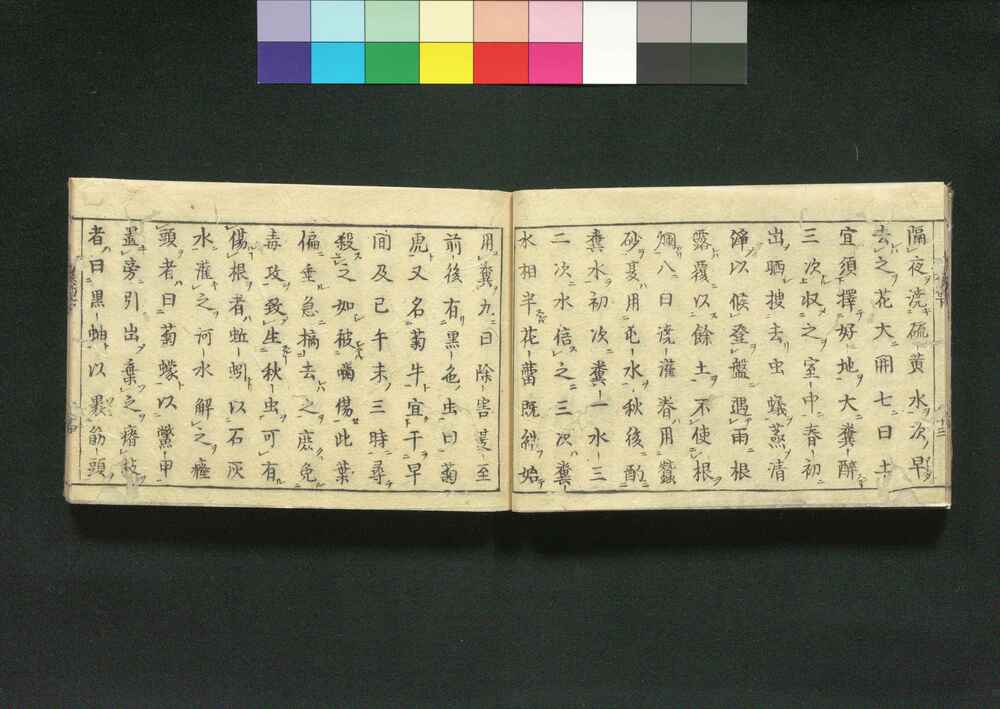 隔夜澆硫黄水次早
去之花大開七曰土
宜須擇好地大糞醉
三次収之室中春初
出晒捜去虫蟻蒸清
淨以候登盤遇雨根
露覆以餘土不使根
爛八曰澆灌春用蠶
砂夏用毛水秋後酌
糞水初次糞一水三
二次水倍之三次糞
水相半花蕾既結始
用糞九曰除害夏至
前後有黒色虫曰菊
虎又名菊牛宜于早
間及巳午未三時尋
殺之如被嚙傷此葉
偏垂急摘去之庶免
毒攻致生秋虫可有
傷根者蚯蚓以石灰
水灌之河水解之瘞
頭者曰菊蟻以鱉甲
置旁引出棄之瘠枝
者曰黒蚰以裹筋頭